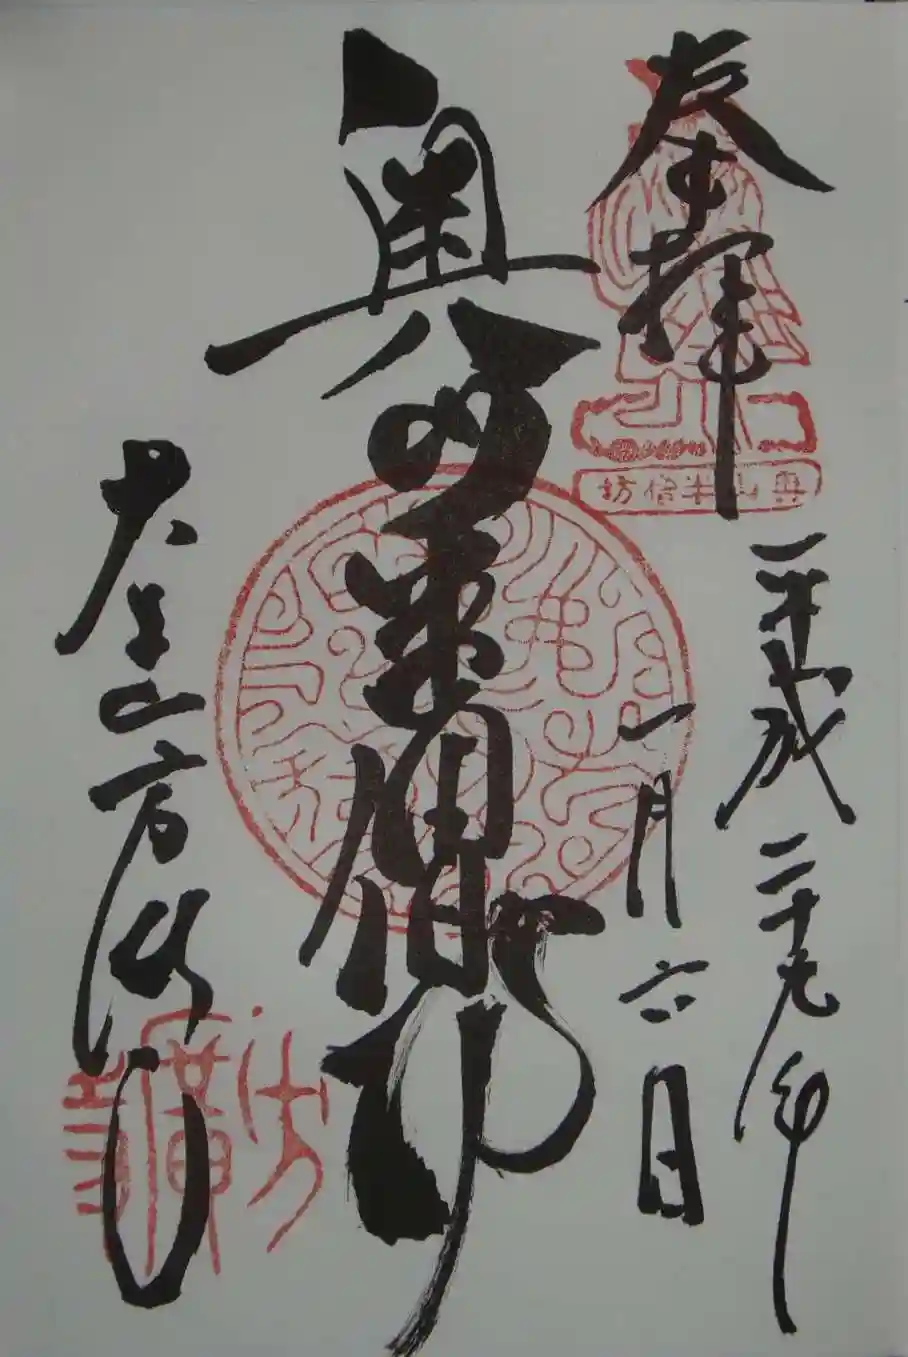 奉拝
奥山半僧坊
平成二十九年
一月六日
奥山半僧坊
大本山方広寺